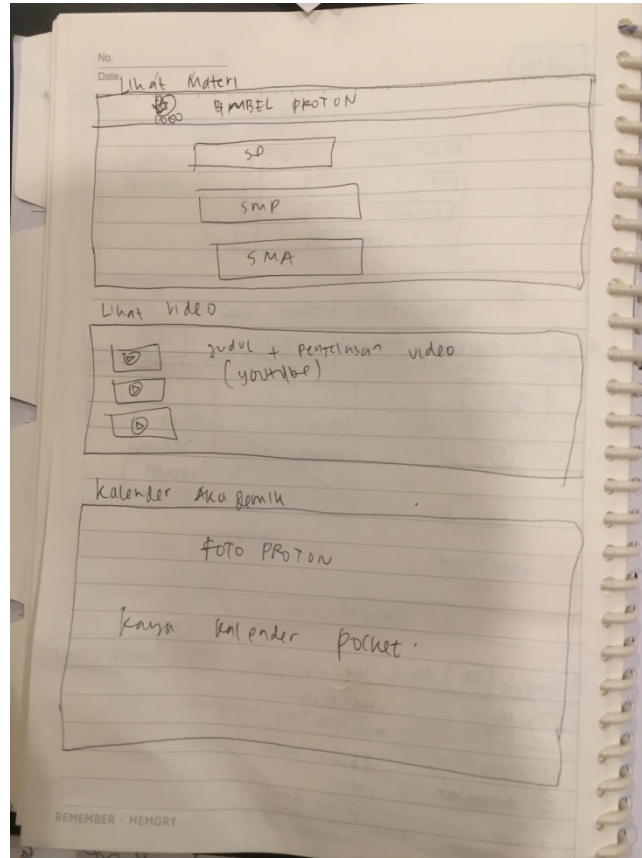 No.
Date
Lihat Materi
LOGO BIMBEL PROTON
SD
SMP
SMA
Lihat video
judul + penjelasan video
(youtube)
Kalender Akademik
FOTO PROTON
Kaya kalender pocket.
REMEMBER · MEMORY